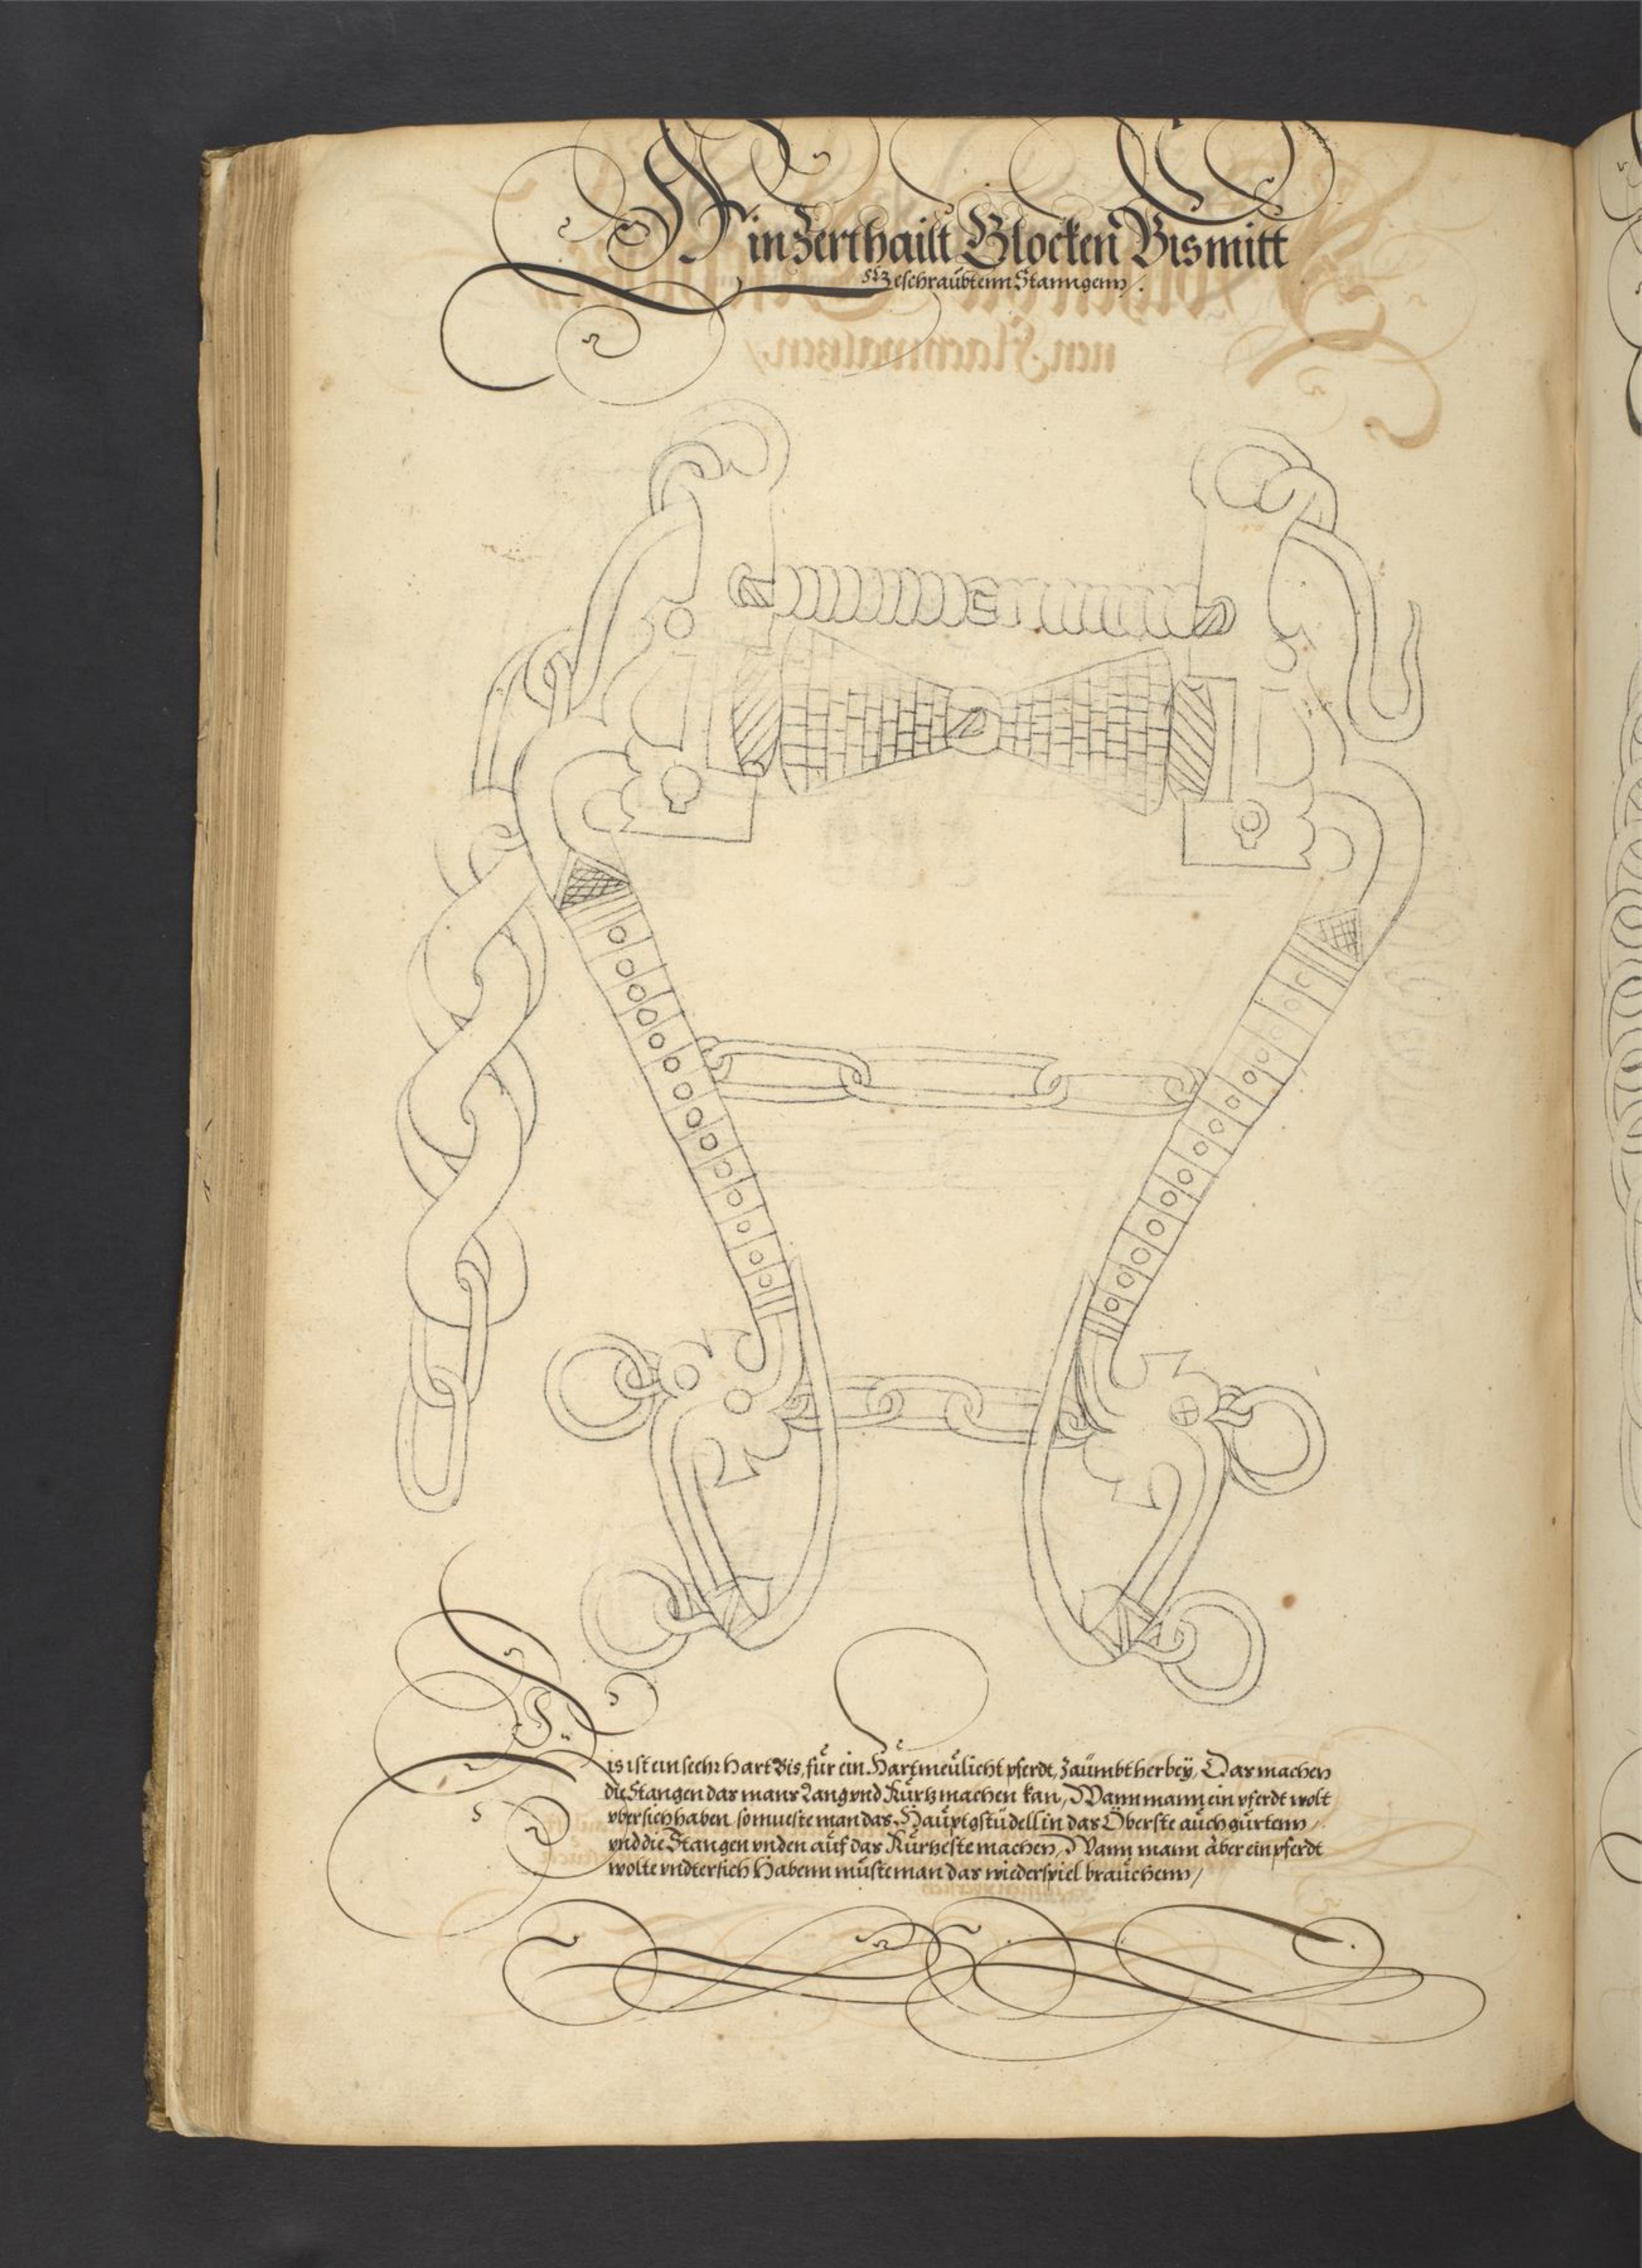 Ain Zerthailt Glocken Bis mitt
Geschraubtenn Stanngenn /.
Dis ist ein seehr Hart Bis, für ein Hartmeülicht pferdt, Zaümbt herbeÿ, Das machen
die Stangen das mans Lang vnd Kürtz machen kan, Wann mann ein pferdt wolt
vbersich haben, so mueste man das Haüptgstüdell in das Öberste auch gürtenn /
vnd die Stangen vnden aüf das Kürtzeste machen, Wann mann aber ein pferdt
wolte vndtersich Habenn müste man das wiederspiel braüchenn /